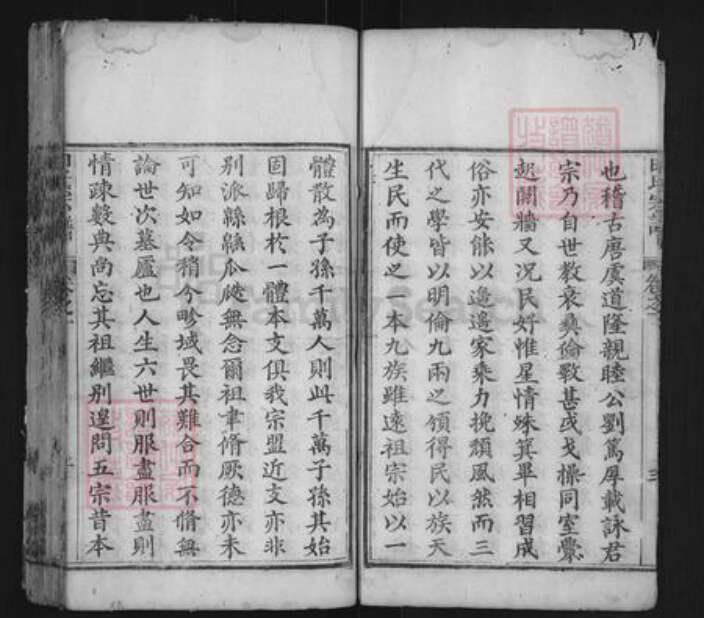 也稽古唐虞道隆親睦公劉篤厚載詠君
宗乃自世教衰彝倫斁甚或戈操同室釁
起鬩牆又况民好惟星情殊箕畢相習成
俗亦安能以邈邈家乘力挽頽風然而三
代之學皆以明倫九兩之領得民以族天
生民而使之一本九族雖遠祖宗始以一
體散為子孫千萬人則此千萬子孫其始
固歸根於一體本支俱我宗盟近支亦非
别派緜緜瓜瓞無念爾祖聿脩厥德亦未
可知如令稍分畛域畏其難合而不脩無
論世次墓廬也人生六世則服盡服盡則
情疎數典尚忘其祖繼别遑問五宗昔本
FamilySearch